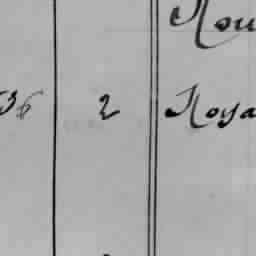 Rou
36 2 Roya